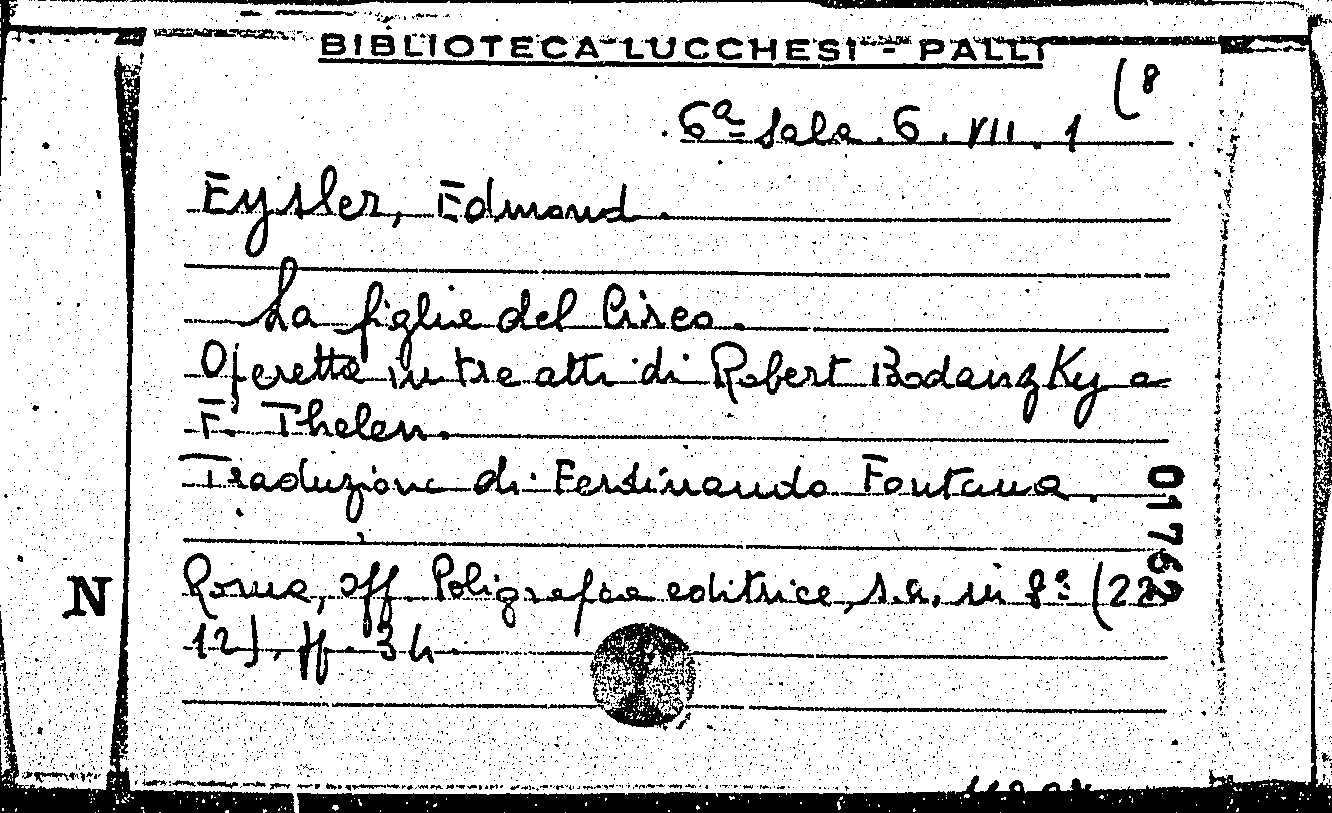 BIBLIOTECA LUCCHESI - PALLI
(8
6ª Sala. 6. VII. 1
Eysler, Edmond.
La figlia del Circo.
Operetta in tre atti di Robert Bodanzky e
F. Thelen.
Traduzione di Ferdinando Fontana.
01762
N
Roma, off. Poligrafica editrice, s.a., in 8º (22
12), pp. 34.